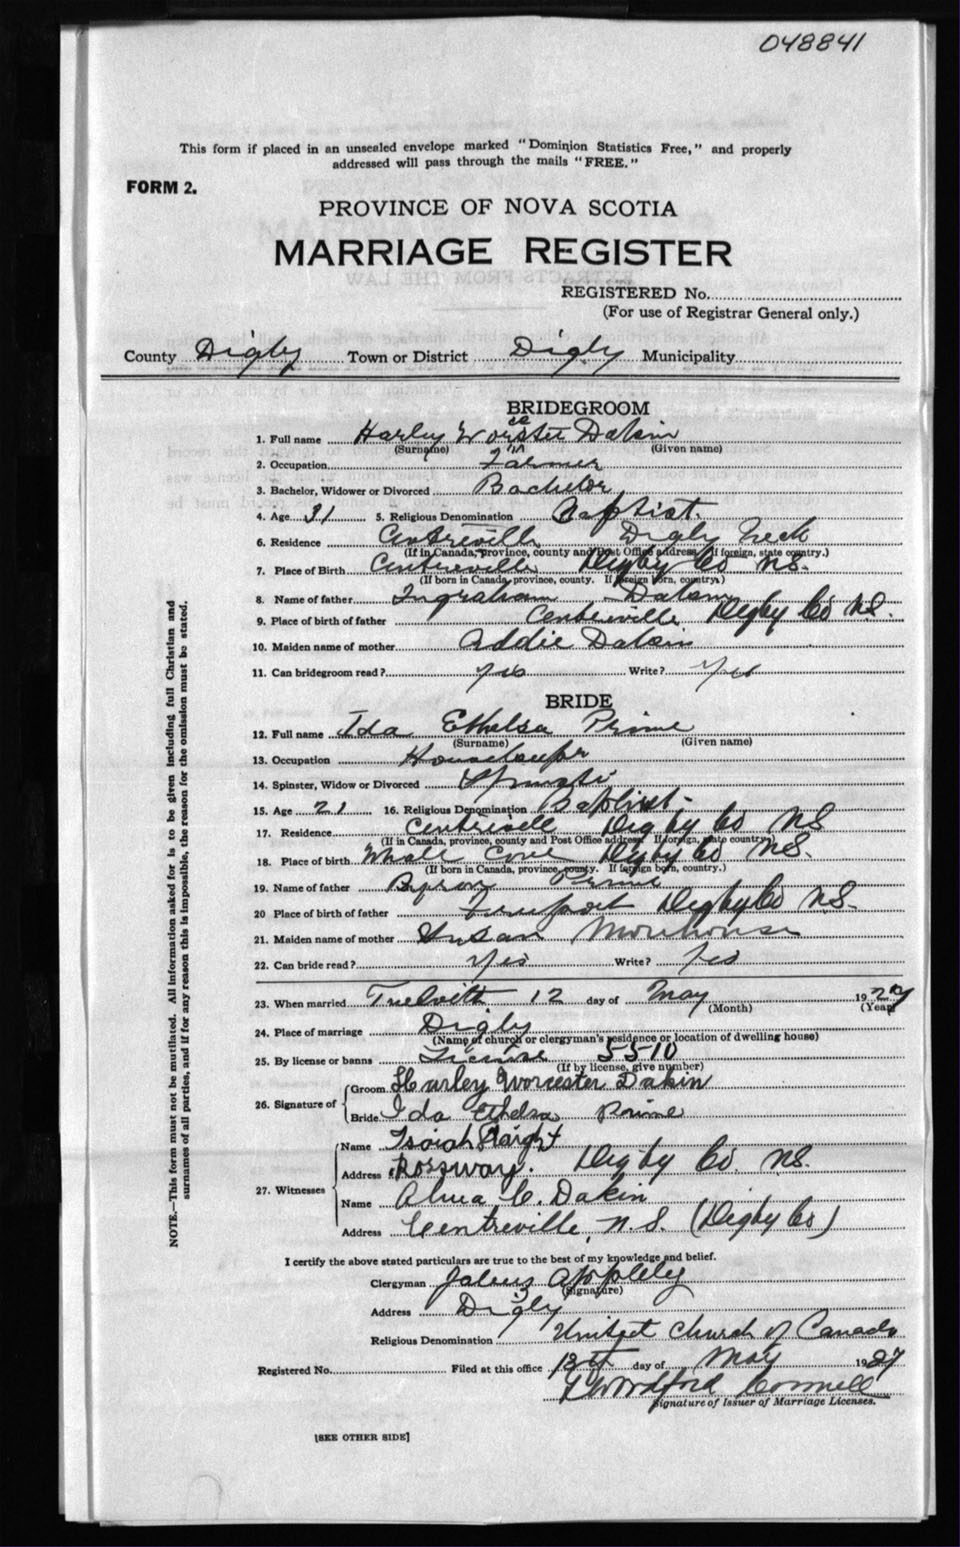 048841
This form if placed in an unsealed envelope marked "Dominion Statistics Free," and properly
addressed will pass through the mails "FREE."
FORM 2.
PROVINCE OF NOVA SCOTIA
MARRIAGE REGISTER
REGISTERED No.
(For use of Registrar General only.)
County Digby Town or District Digby Municipality
BRIDEGROOM
1. Full name Harley Worster Dakin
(Surname) (Given name)
2. Occupation Farmer
3. Bachelor, Widower or Divorced Bachelor
4. Age 31 5. Religious Denomination Baptist.
6. Residence Centreville Digby Neck
(If in Canada, province, county and Post Office address. If foreign, state country.)
7. Place of Birth Centreville Digby Co N.S.
(If born in Canada, province, county. If foreign born, country.)
8. Name of father Ingraham Dakin
9. Place of birth of father Centreville Digby Co N.S.
10. Maiden name of mother Addie Dakin
11. Can bridegroom read? Yes Write? Yes
BRIDE
12. Full name Ida Ethelsa Prime
(Surname) (Given name)
13. Occupation Housekeeper
14. Spinster, Widow or Divorced Spinster
15. Age 21 16. Religious Denomination Baptist
17. Residence Centrevill Digby Co NS
(If in Canada, province, county and Post Office address. If foreign, state country.)
18. Place of birth Whale Cove Digby Co N.S.
(If born in Canada, province, county. If foreign born, country.)
19. Name of father Byron Prime
20 Place of birth of father Freeport Digby Co N.S.
21. Maiden name of mother Susan Morehouse
22. Can bride read? Yes Write? Yes
23. When married 12 day of May 1927
(Month) (Year)
24. Place of marriage Digby
(Name of church or clergyman's residence or location of dwelling house)
25. By license or banns License 5510
(If by license, give number)
26. Signature of
Groom Harley Worcester Dakin
Bride Ida Ethelsa Prime
27. Witnesses
Name Isaiah Haight
Address Rossway. Digby Co. N.S.
Name Alma C. Dakin
Address Centreville, N.S. (Digby Co)
I certify the above stated particulars are true to the best of my knowledge and belief.
Clergyman Appleby
(Signature)
Address Digby
Religious Denomination United Church of Canada
Registered No. Filed at this office 13th day of May 1927
Woodford Connell
Signature of Issuer of Marriage Licenses.
[SEE OTHER SIDE]
NOTE.—This form must not be mutilated. All information asked for is to be given including full Christian and
surnames of all parties, and if for any reason this is impossible, the reason for the omission must be stated.